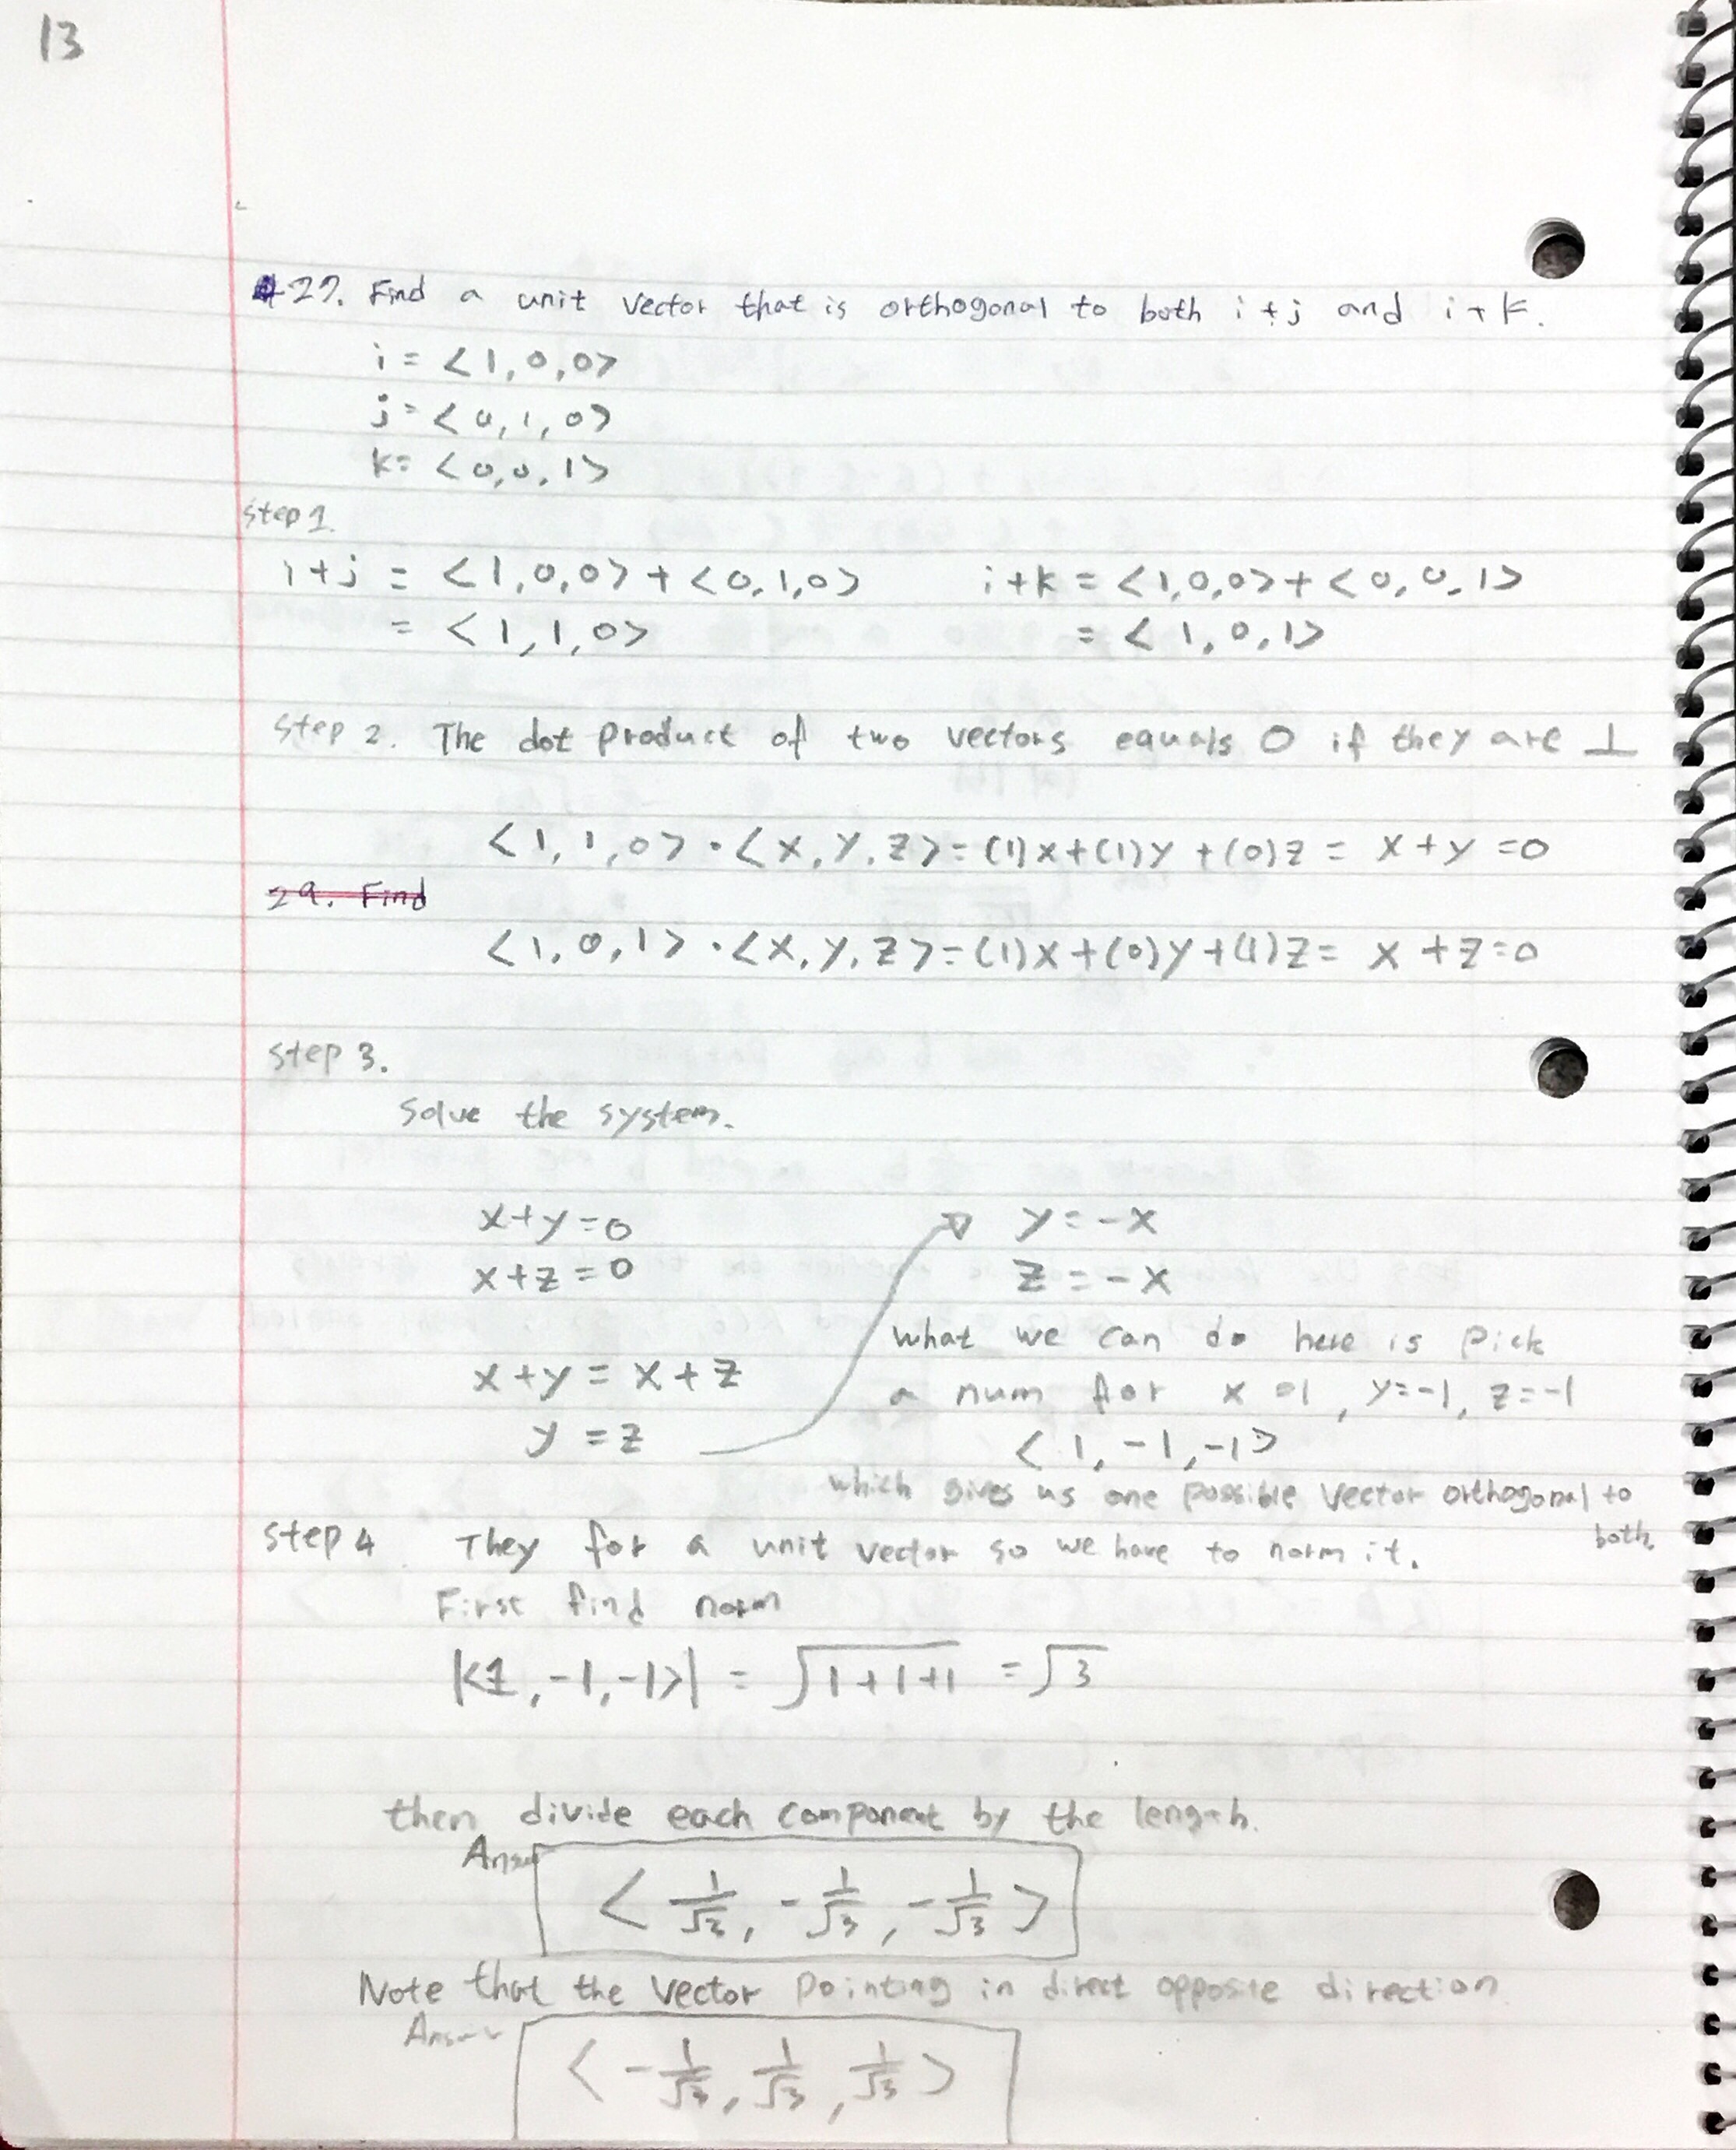 13
27. Find a unit vector that is orthogonal to both i+j and i+k.
i = <1,0,0>
j = <0,1,0>
k = <0,0,1>
step 1.
i+j = <1,0,0> + <0,1,0>    i+k = <1,0,0> + <0,0,1>
= <1,1,0>    = <1,0,1>
step 2. The dot product of two vectors equals 0 if they are ⊥
<1,1,0> · <x,y,z> = (1)x+(1)y+(0)z = x+y=0
29. Find
<1,0,1> · <x,y,z> = (1)x+(0)y+(1)z = x+z=0
step 3.
solve the system.
x+y=0    y=-x
x+z=0    z=-x
what we can do here is pick
x+y = x+z    a num for x=1, y=-1, z=-1
y=z    <1,-1,-1>
which gives us one possible vector orthogonal to
both.
step 4 They for a unit vector so we have to norm it.
First find norm
|<1,-1,-1>| = √1+1+1 = √3
then divide each component by the length.
Answ
<1/√3, -1/√3, -1/√3>
Note that the vector pointing in direct opposite direction
Answer
<-1/√3, 1/√3, 1/√3>